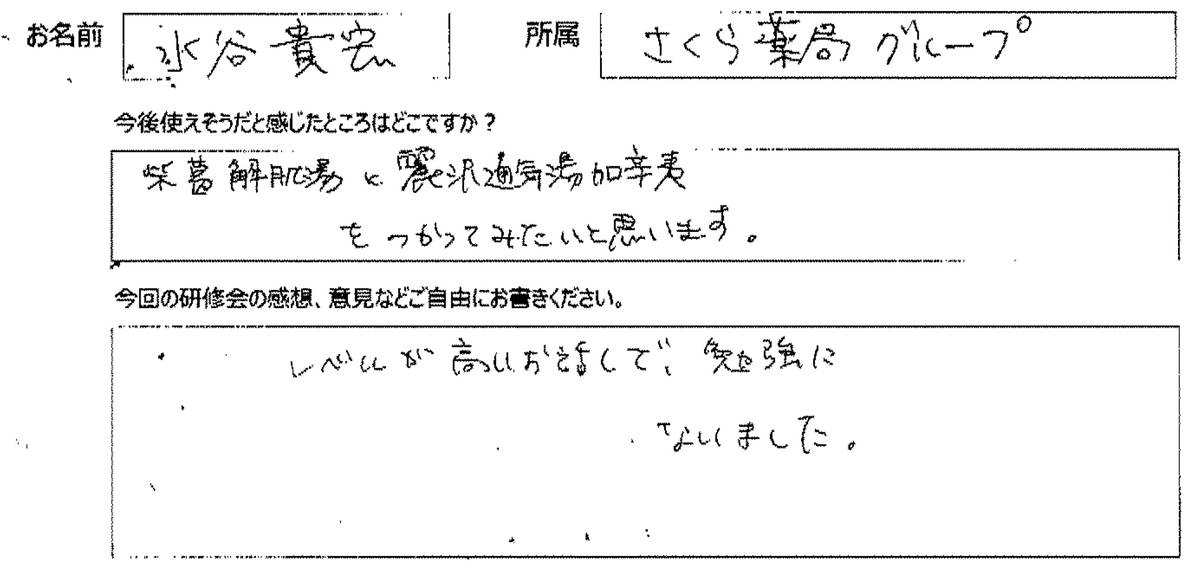 お名前 水谷貴宏 所属 さくら薬局グループ
今後使えそうだと感じたところはどこですか？
柴葛解肌湯と麗沢通気湯加辛夷
をつかってみたいと思います。
今回の研修会の感想、意見などご自由にお書きください。
レベルが高いお話しで、勉強に
なりました。